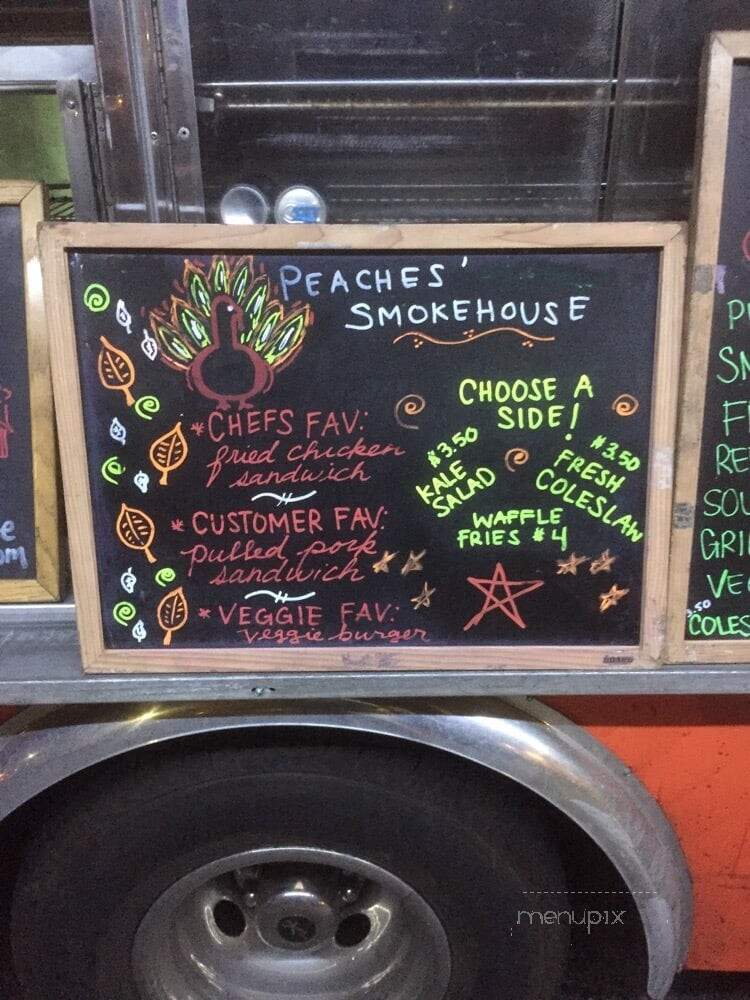 PEACHES'
SMOKEHOUSE
* CHEFS FAV:
fried chicken
sandwich
* CUSTOMER FAV:
pulled pork
sandwich
* VEGGIE FAV:
veggie burger
CHOOSE A
SIDE!
$3.50
KALE
SALAD
$3.50
FRESH
COLESLAW
WAFFLE
FRIES $4
menupix